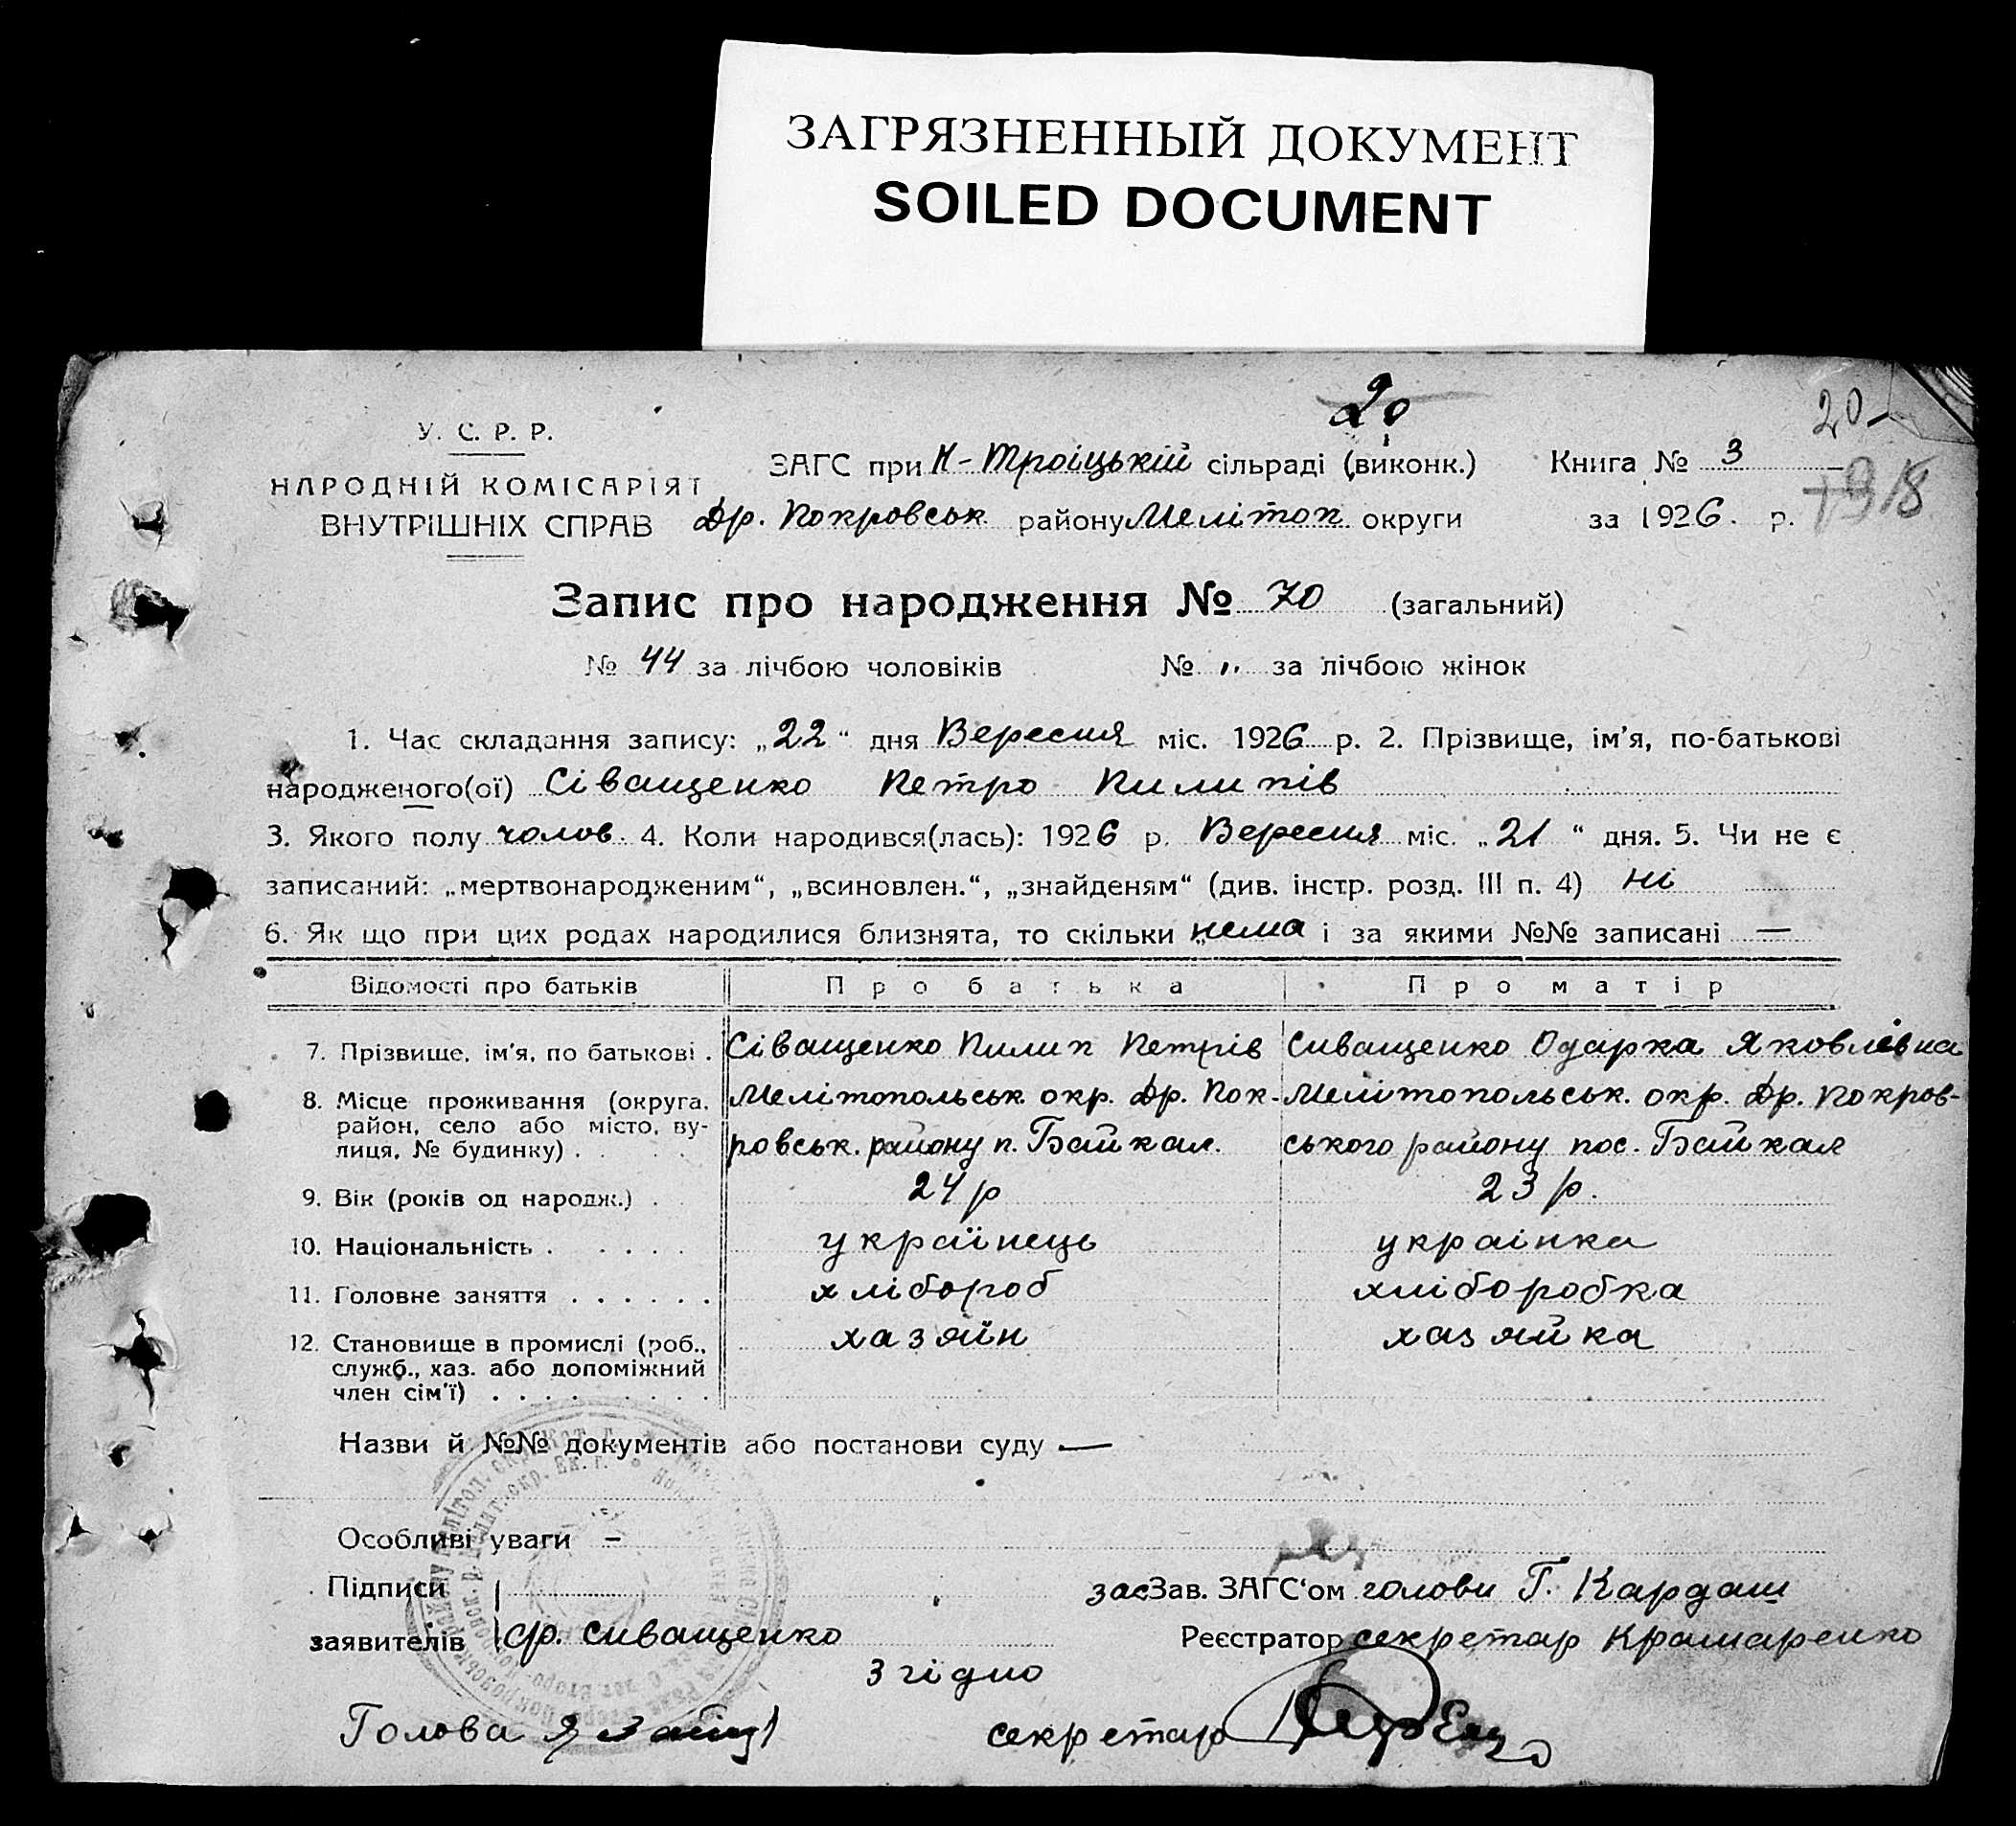 ЗАГРЯЗНЕННЫЙ ДОКУМЕНТ
SOILED DOCUMENT
20
20
У. С. Р. Р.
НАРОДНІЙ КОМІСАРІЯТ
ВНУТРІШНІХ СПРАВ
ЗАГС при Н-Троіцькій сільраді (виконк.) Книга № 3
Др. Покровськ району Мелітоп. округи за 1926. р.
Запис про народження № 70 (загальний)
№ 44 за лічбою чоловіків № „ за лічбою жінок
1. Час складання запису: „22“ дня Вересня міс. 1926 р. 2. Прізвище, ім'я, по-батькові
народженого(ої) Сіващенко Петро Пилипів
3. Якого полу чолов. 4. Коли народився(лась): 1926 р. Вересня міс. „21“ дня. 5. Чи не є
записаний: „мертвонародженим“, „всиновлен.“, „знайденям“ (див. інстр. розд. III п. 4) ні
6. Як що при цих родах народилися близнята, то скільки нема і за якими №№ записані —
Відомості про батьків Про батька Про матір
7. Прізвище, ім'я, по батькові . Сіващенко Пилип Петрів Сиващенко Одарка Яковлівна
8. Місце проживання (округа, район, село або місто, вулиця, № будинку) . Мелітопольськ окр. Др. Пок-ровськ. району п. Байкал. Мелітопольськ. окр. Др. Покров-ського району пос. Байкал
9. Вік (років од народж.) . 24 р 23 р.
10. Національність . українець украінка
11. Головне заняття . хлібороб хліборобка
12. Становище в промислі (роб., служб., хаз. або допоміжний член сім'ї) . хазяйн хазяйка
Назви й №№ документів або постанови суду —
Особливі уваги –
Підписи засЗав. ЗАГС'ом голови Г. Кардаш
заявителів Ф. Сиващенко Реєстратор секретар Крамаренко
Згідно
Голова секретар